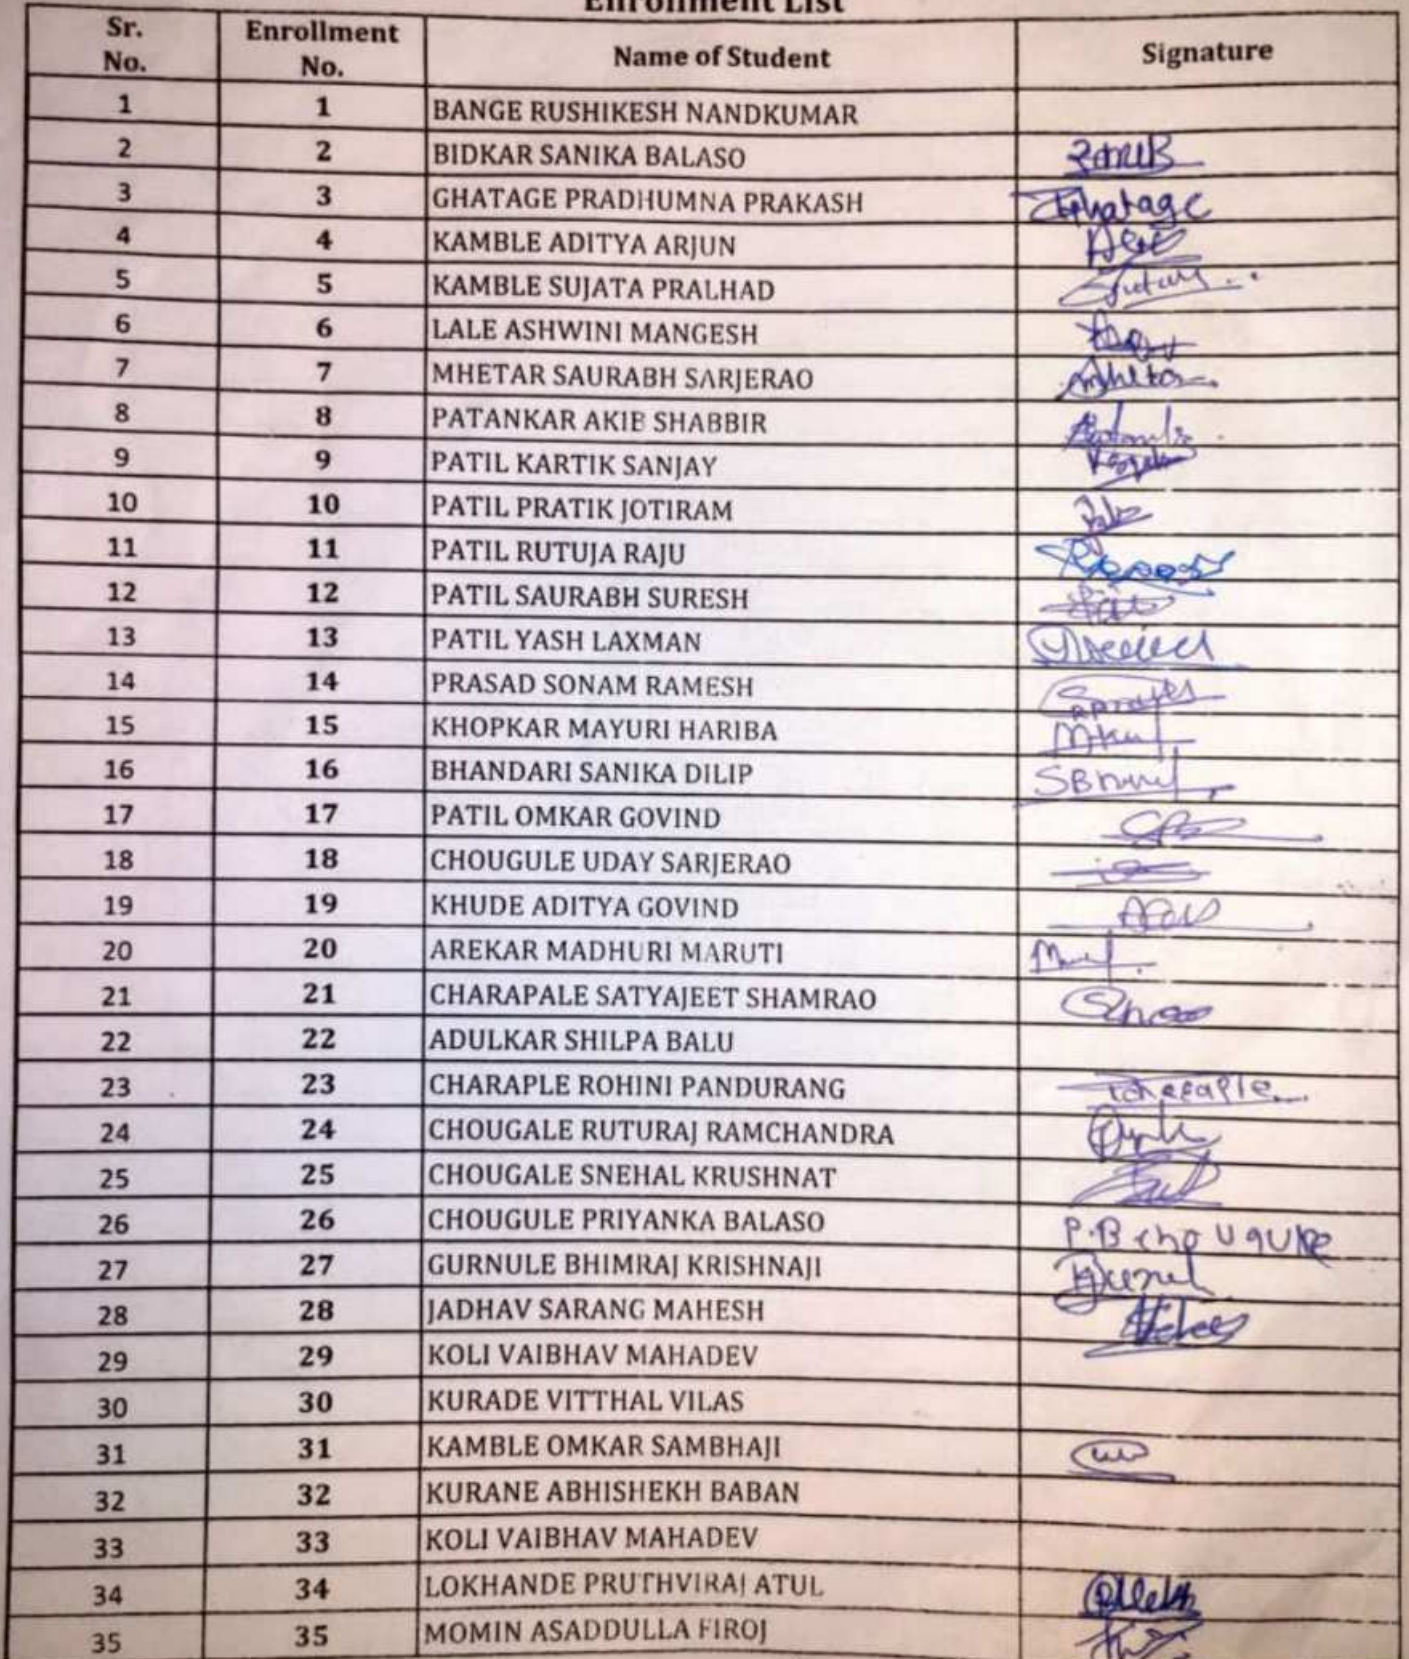 Enrollment List
Sr. No. Enrollment No. Name of Student Signature
1 1 BANGE RUSHIKESH NANDKUMAR
2 2 BIDKAR SANIKA BALASO
3 3 GHATAGE PRADHUMNA PRAKASH Ghatage
4 4 KAMBLE ADITYA ARJUN
5 5 KAMBLE SUJATA PRALHAD
6 6 LALE ASHWINI MANGESH
7 7 MHETAR SAURABH SARJERAO
8 8 PATANKAR AKIB SHABBIR
9 9 PATIL KARTIK SANJAY
10 10 PATIL PRATIK JOTIRAM
11 11 PATIL RUTUJA RAJU
12 12 PATIL SAURABH SURESH
13 13 PATIL YASH LAXMAN
14 14 PRASAD SONAM RAMESH
15 15 KHOPKAR MAYURI HARIBA
16 16 BHANDARI SANIKA DILIP
17 17 PATIL OMKAR GOVIND
18 18 CHOUGULE UDAY SARJERAO
19 19 KHUDE ADITYA GOVIND
20 20 AREKAR MADHURI MARUTI
21 21 CHARAPALE SATYAJEET SHAMRAO
22 22 ADULKAR SHILPA BALU
23 23 CHARAPLE ROHINI PANDURANG
24 24 CHOUGALE RUTURAJ RAMCHANDRA
25 25 CHOUGALE SNEHAL KRUSHNAT
26 26 CHOUGULE PRIYANKA BALASO P.B
27 27 GURNULE BHIMRAJ KRISHNAJI
28 28 JADHAV SARANG MAHESH
29 29 KOLI VAIBHAV MAHADEV
30 30 KURADE VITTHAL VILAS
31 31 KAMBLE OMKAR SAMBHAJI
32 32 KURANE ABHISHEKH BABAN
33 33 KOLI VAIBHAV MAHADEV
34 34 LOKHANDE PRUTHVIRAJ ATUL
35 35 MOMIN ASADDULLA FIROJ